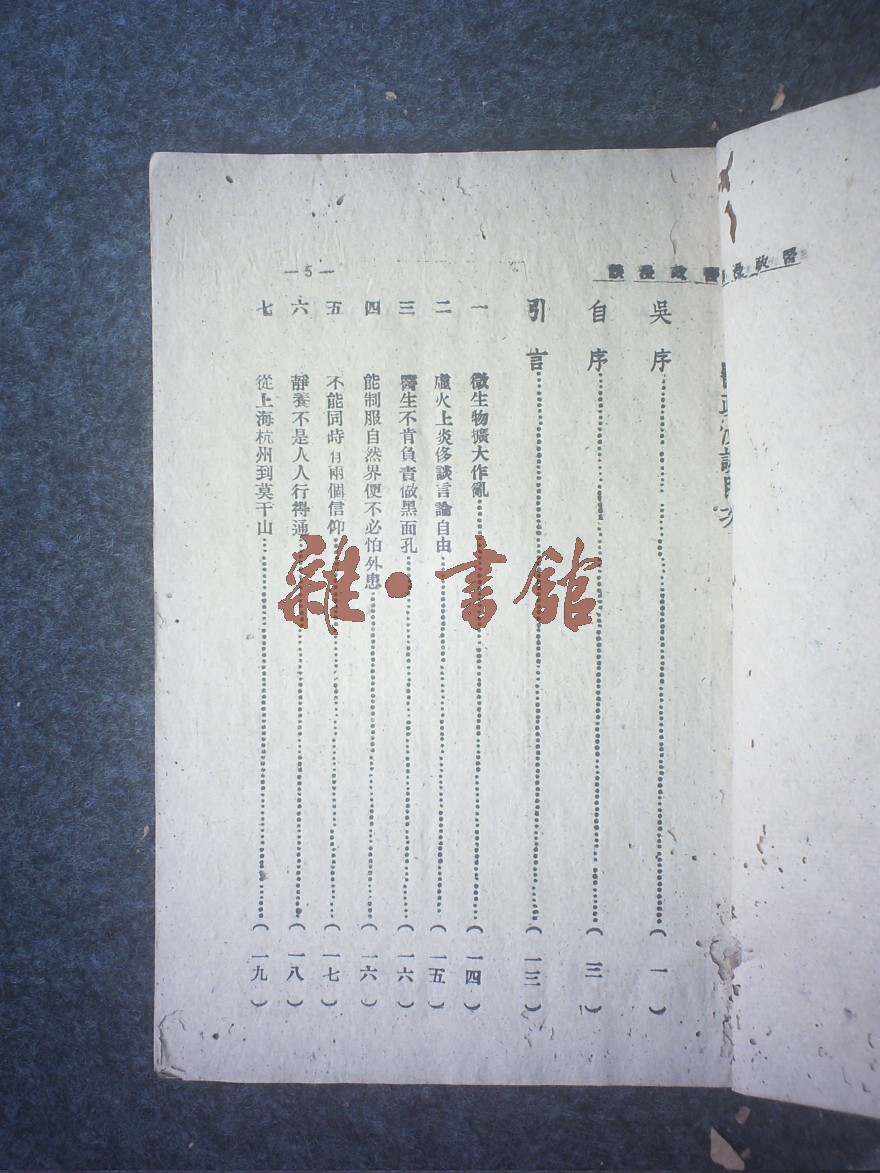 談漫政醫
醫政漫談目次
吳序……(一)
自序……(三)
引言……(一三)
一 微生物擴大作亂……(一四)
二 虛火上炎侈談言論自由……(一五)
三 醫生不肯負責做黑面孔……(一六)
四 能制服自然界便不必怕外患……(一六)
五 不能同時有兩個信仰……(一七)
六 靜養不是人人行得通……(一八)
七 從上海杭州到莫干山……(一九)
—5—
雜·書館